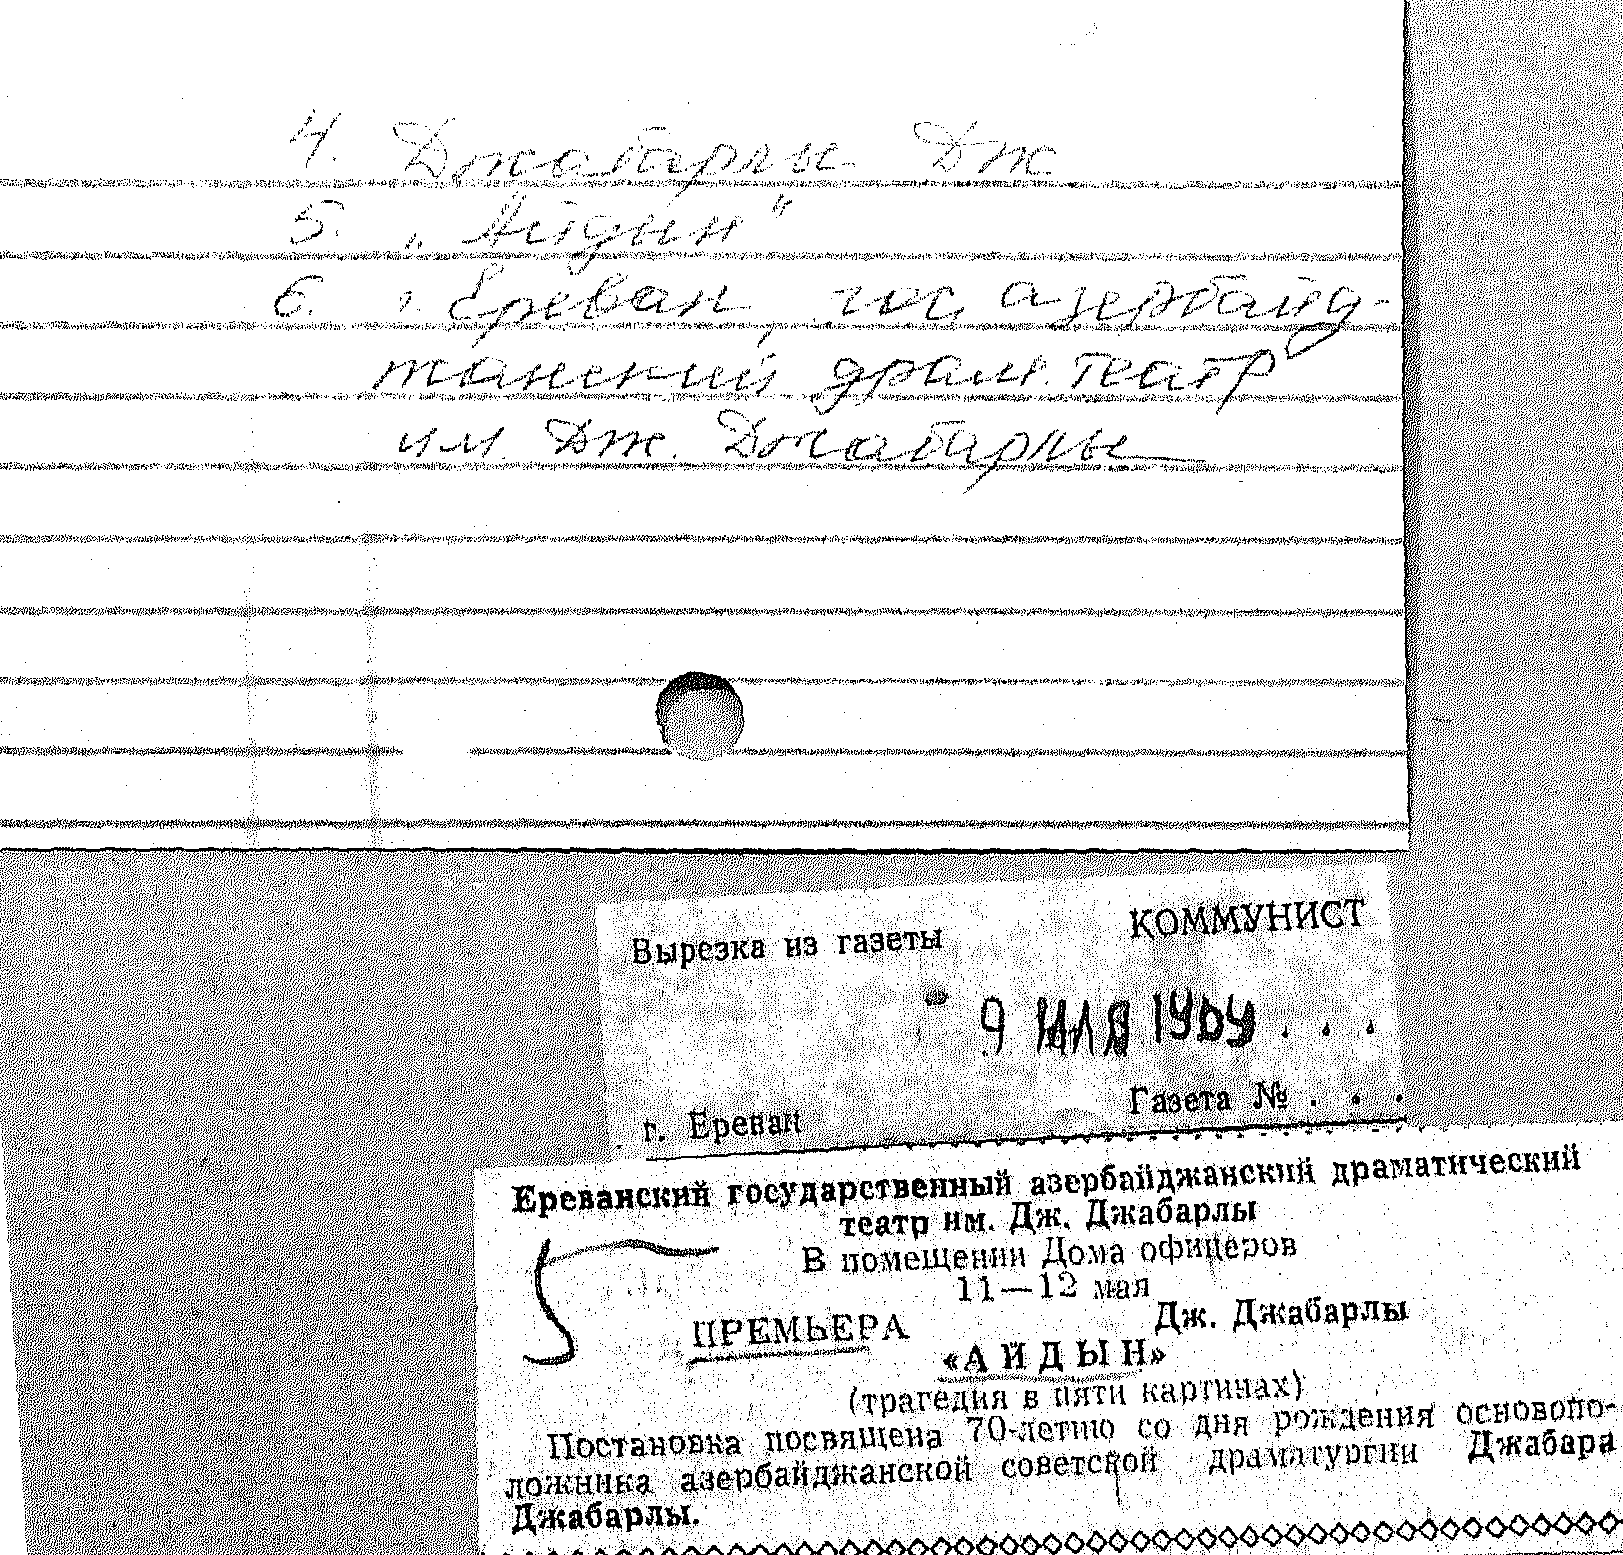 4. Джабарлы Дж
5. „Айдын“
6. г. Ереван, гос. азербайд-
жанский драм. театр
им. Дж. Джабарлы
Вырезка из газеты
КОММУНИСТ
9 МАЯ
г. Ереван
Газета № . . .
Ереванский государственный азербайджанский драматический
театр им. Дж. Джабарлы
В помещении Дома офицеров
11—12 мая
ПРЕМЬЕРА
Дж. Джабарлы
«АЙДЫН»
(трагедия в пяти картинах)
Постановка посвящена 70-летию со дня рождения осново­по-
ложника азербайджанской советской драматургии Джабара
Джабарлы.